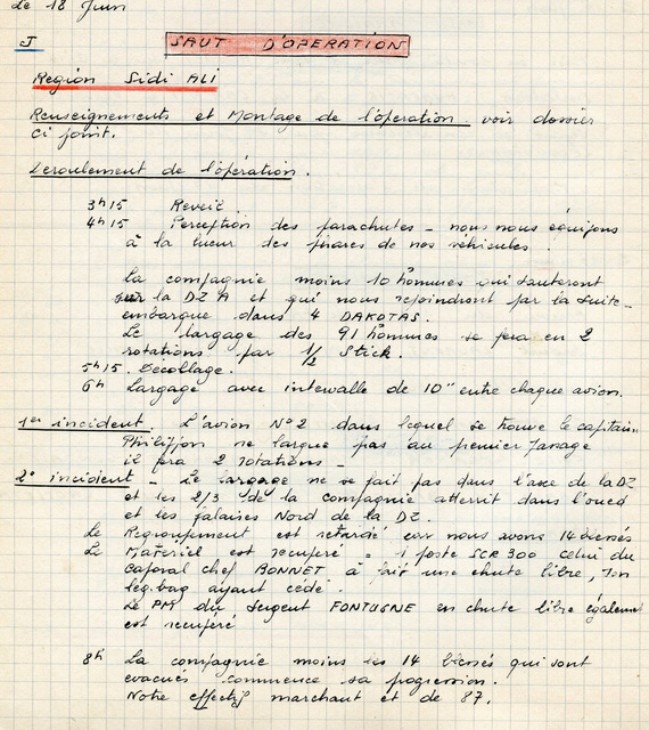 Le 18 Juin
I
SAUT D'OPERATION
Région Sidi ALI
Renseignements et Montage de l'opération. voir dossier
ci joint.
Deroulement de l'opération.
3h15 Reveil
4h15 Perception des parachutes - nous nous équipons
à la lueur des phares de nos véhicules
La compagnie moins 10 hommes qui sauteront
sur la DZ A et qui nous rejoindront par la suite -
embarque dans 4 DAKOTAS.
Le largage des 91 hommes se fera en 2
rotations par 1/2 Stick.
5h15. Décollage.
6h Largage avec intervalle de 10" entre chaque avion.
1er incident. L'avion N°2 dans lequel se trouve le capitain
Philippon ne largue pas au premier passage
il fra 2 rotations -
2e incident - Le largage ne se fait pas dans l'axe de la DZ
et les 2/3 de la compagnie atterrit dans l'oued
et les falaises Nord de la DZ.
Le Regroupement est retardé car nous avons 14 blessés
Le Matériel est recuperé - 1 poste SCR 300 celui du
Caporal chef BONNET à fait une chute libre, son
leg.bag ayant cédé.
Le PM du Sergent FONTUGNE en chute libre égalemt
est recuperé
8h La compagnie moins les 14 blessés qui sont
evacués commence sa pogression.
Notre effectif marchant et de 87.